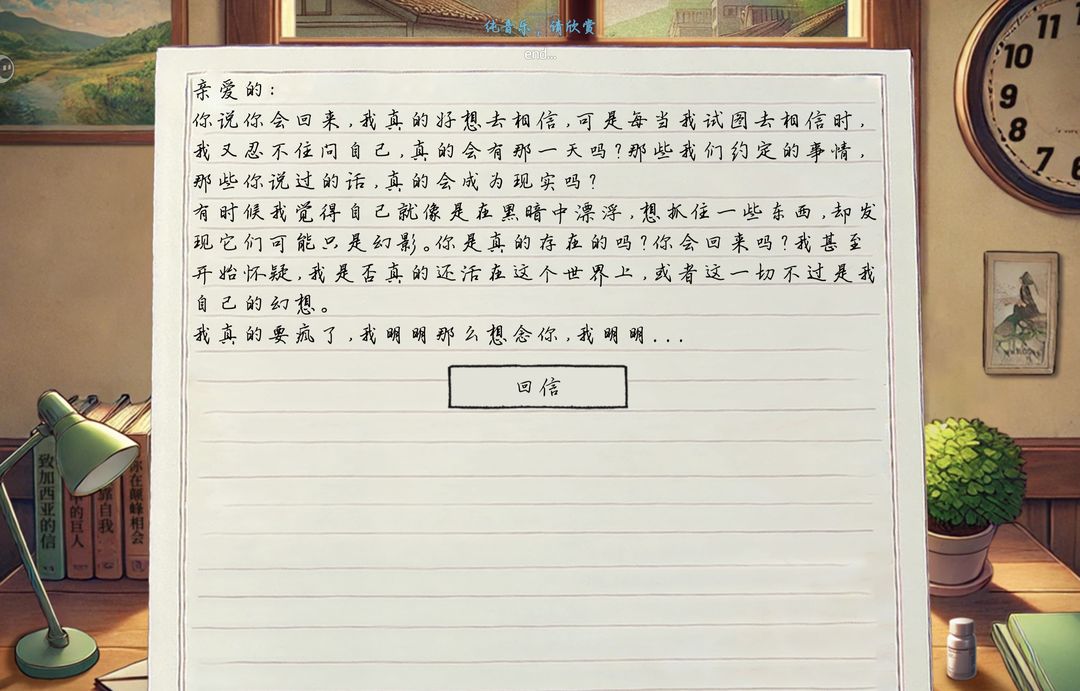 纯音乐，请欣赏
end...
亲爱的：
你说你会回来,我真的好想去相信,可是每当我试图去相信时,
我又忍不住问自己,真的会有那一天吗?那些我们约定的事情,
那些你说过的话,真的会成为现实吗?
有时候我觉得自己就像是在黑暗中漂浮,想抓住一些东西,却发
现它们可能只是幻影。你是真的存在的吗?你会回来吗?我甚至
开始怀疑,我是否真的还活在这个世界上,或者这一切不过是我
自己的幻想。
我真的要疯了,我明明那么想念你,我明明...
回信
致加西亚的信
中的巨人
靠自我
你在颠峰相会
11
10
9
8
7
6